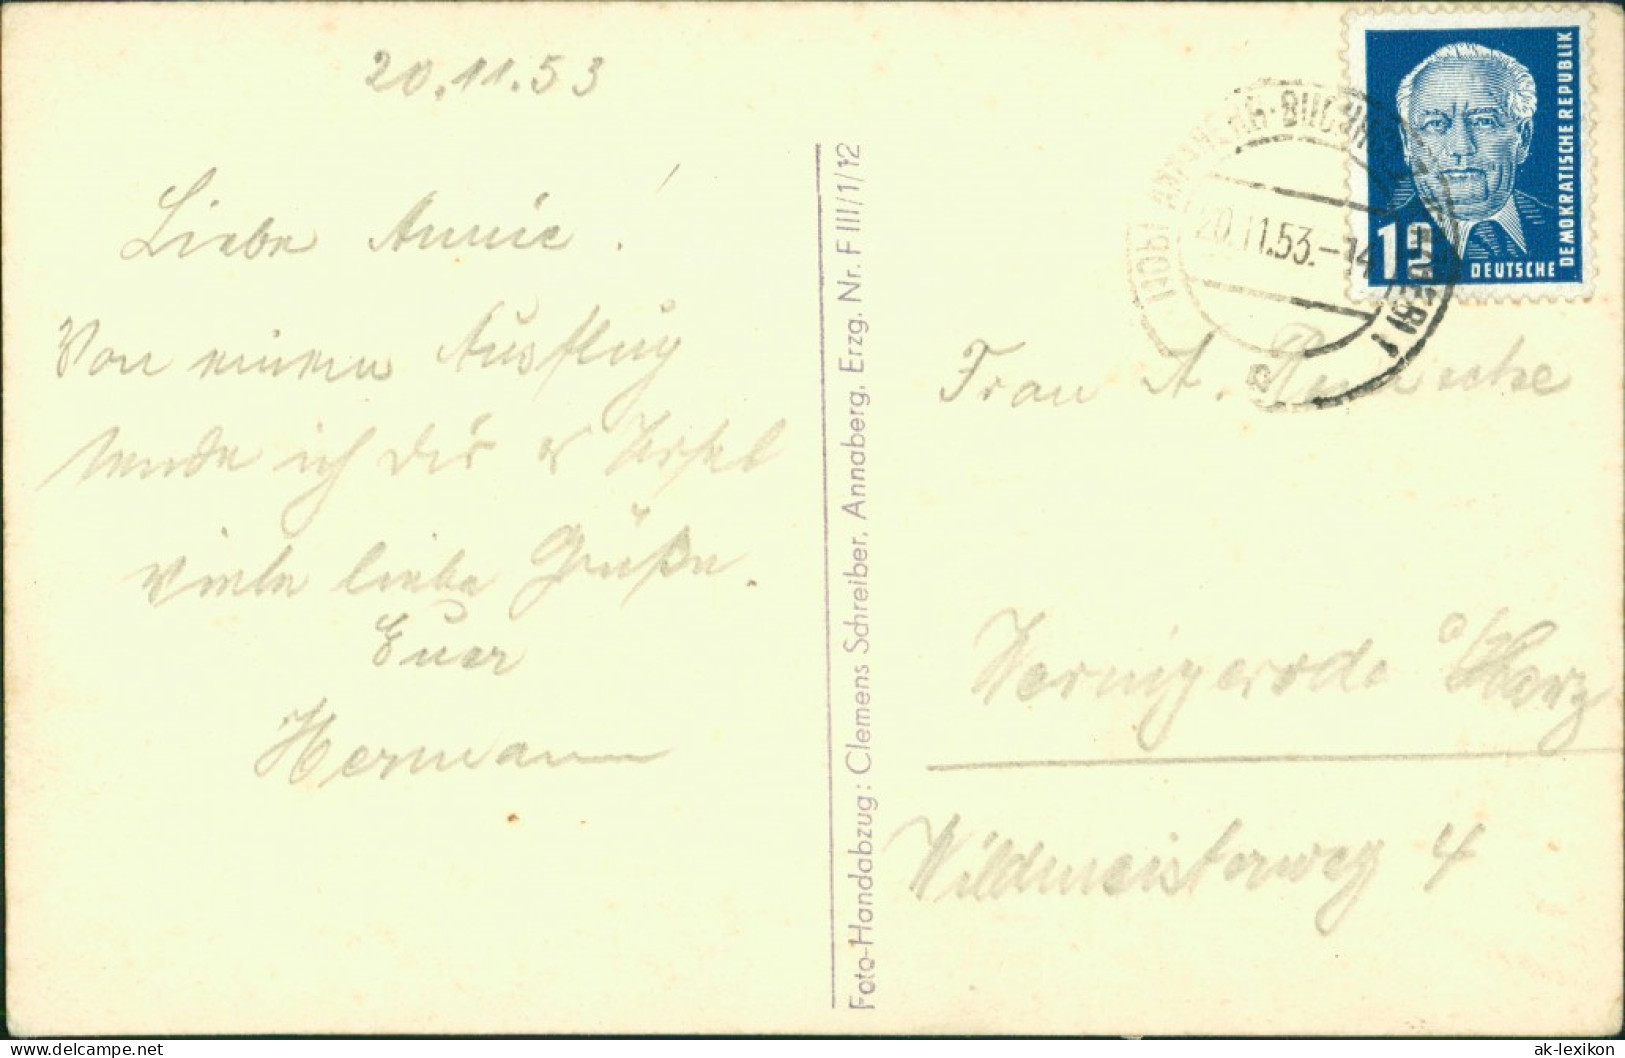 20.11.53
Liebe Annie!
Von einem Ausflug
sende ich Dir
viele liebe Grüße.
Euer
Hermann
Foto-Handabzug: Clemens Schreiber, Annaberg, Erzg. Nr. F III/1/12
12
DEUTSCHE
DEMOKRATISCHE REPUBLIK
20.11.53.-14
Frau A.
Wernigerode a/Harz
Wildmeisterweg 4
www.delcampe.net
ak-lexikon